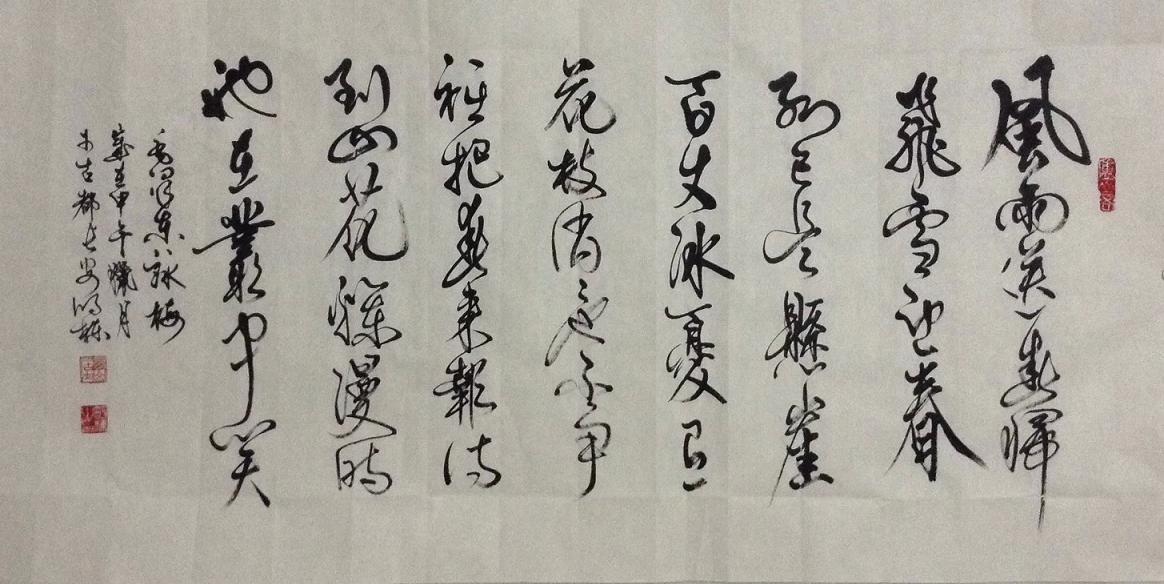 風雨送春歸
飛雪迎春
到已是懸崖
百丈冰有
花枝俏也不爭
祇把春來報待
到山花爛漫時
她在叢中笑
毛澤東詠梅
歲在甲午臘月
於古都長安